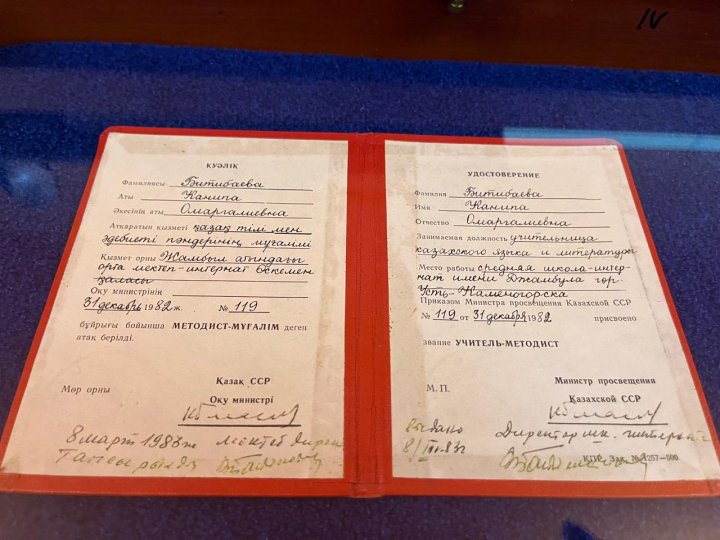 IV
КУӘЛІК
Фамилиясы Битибаева
Аты Канипа
Әкесінің аты Омаргалиевна
Атқаратын қызметі қазақ тілі мен
әдебиеті пәндерінің мұғалімі
Қызмет орны Жамбыл атындағы
орта мектеп-интернат Өскемен
қаласы
Оқу министрінің
31 декабрь 1982 ж. № 119
бұйрығы бойынша МЕТОДИСТ-МҰҒАЛІМ деген
атақ берілді.
Қазақ ССР
Мөр орны Оқу министрі
8 март 1983 ж мектеб дирек
Тапсырылды
УДОСТОВЕРЕНИЕ
Фамилия Битибаева
Имя Канипа
Отчество Омаргалиевна
Занимаемая должность учительница
казахского языка и литературы
Место работы средняя школа-интер-
нат имени Джамбула гор.
Усть-Каменогорска
Приказом Министра просвещения Казахской ССР
№ 119 от 31 декабря 1982 присвоено
звание УЧИТЕЛЬ-МЕТОДИСТ
М. П. Министр просвещения
Казахской ССР
Выдано Директор шк. интернат
8/III-83г
КПР. Зак. № 1257—500